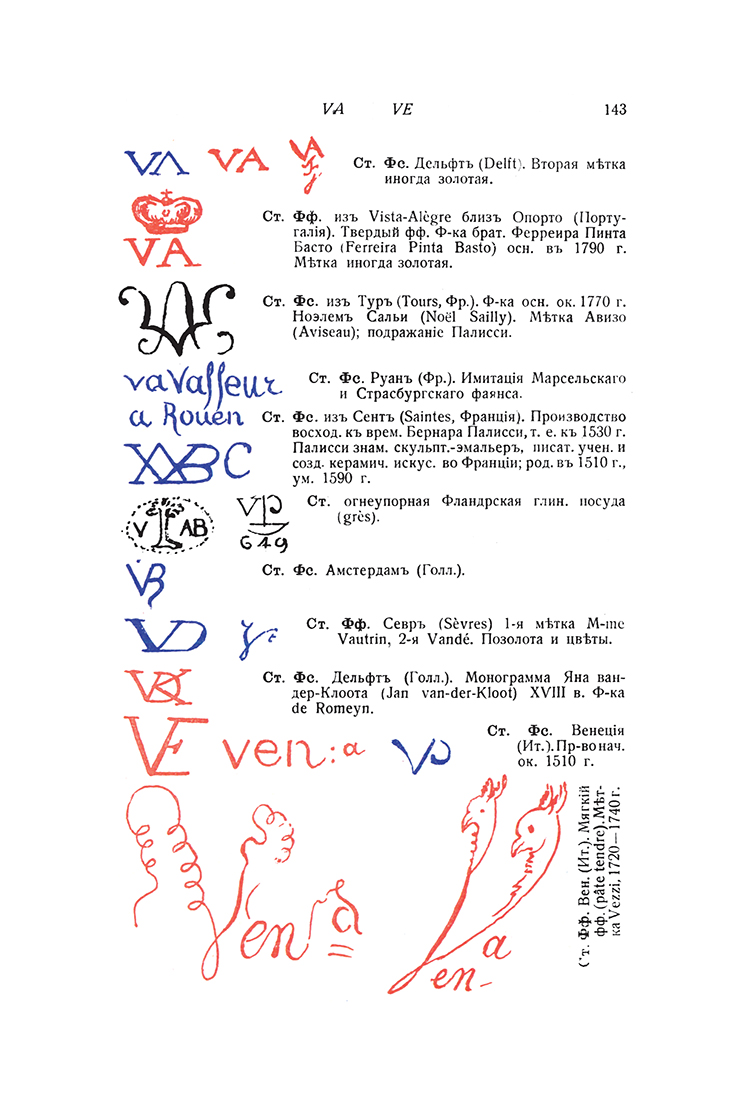 VA VE 143
VA VA VA
Ст. Фс. Дельфтъ (Delft). Вторая мѣтка
иногда золотая.
VA
Ст. Фф. изъ Vista-Alègre близъ Опорто (Порту-
галія). Твердый фф. Ф-ка брат. Ферреира Пинта
Басто (Ferreira Pinta Basto) осн. въ 1790 г.
Мѣтка иногда золотая.
Ст. Фс. изъ Туръ (Tours, Фр.). Ф-ка осн. ок. 1770 г.
Ноэлемъ Сальи (Noël Sailly). Мѣтка Авизо
(Aviseau); подражаніе Палисси.
vaVasseur
a Rouen
Ст. Фс. Руанъ (Фр.). Имитація Марсельскаго
и Страсбургскаго фаянса.
Ст. Фс. изъ Сентъ (Saintes, Франція). Производство
восход. къ врем. Бернара Палисси, т. е. къ 1530 г.
Палисси знам. скульпт.-эмальеръ, писат. учен. и
созд. керамич. искус. во Франціи; род. въ 1510 г.,
ум. 1590 г.
V AB
VP
649
Ст. огнеупорная Фландрская глин. посуда
(grès).
VB
Ст. Фс. Амстердамъ (Голл.).
VD
Ст. Фф. Севръ (Sèvres) 1-я мѣтка M-me
Vautrin, 2-я Vandé. Позолота и цвѣты.
Ст. Фс. Дельфтъ (Голл.). Монограмма Яна ван-
дер-Клоота (Jan van-der-Kloot) XVIII в. Ф-ка
de Romeyn.
VE ven:a
Ст. Фс. Венеція
(Ит.). Пр-во нач.
ок. 1510 г.
Ven a
Ven a
Ст. Фф. Вен. (Ит.). Мягкій
фф. (pâte tendre). Мѣт-
ка Vezzi. 1720—1740 г.